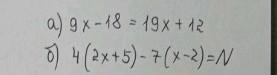 а) 9x-18=19x+12
б) 4(2x+5)-7(x-2)=N